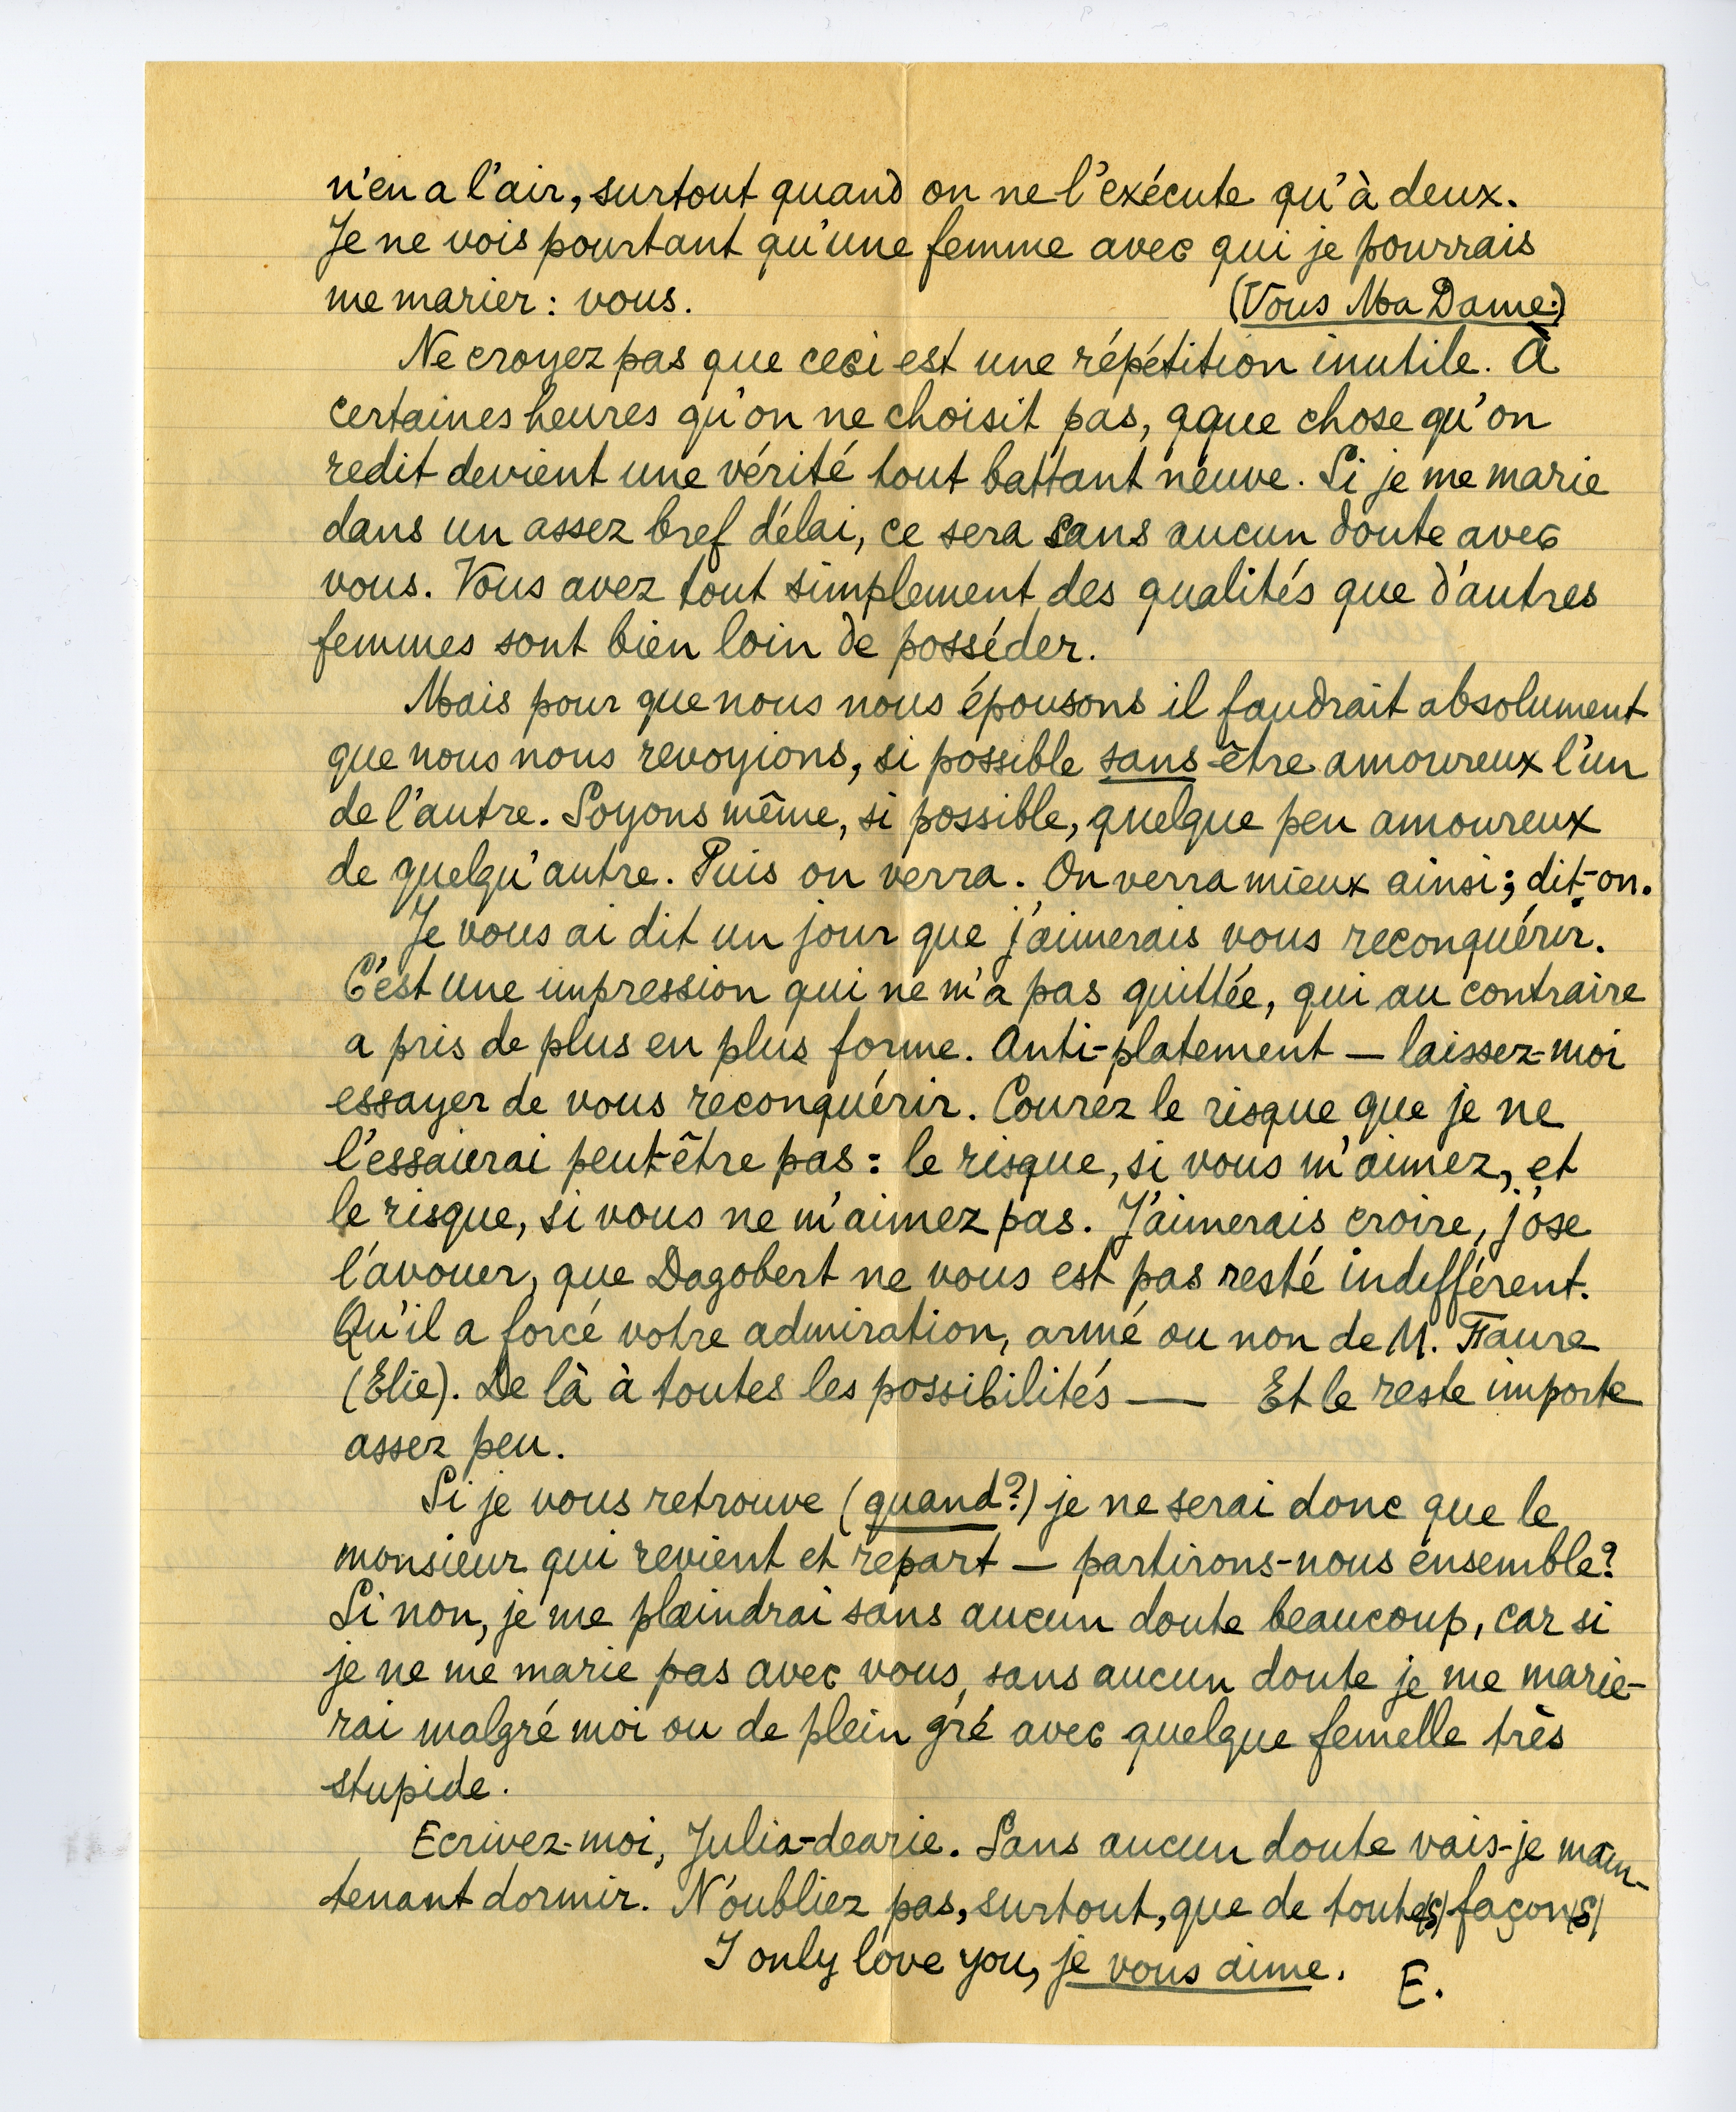 n'en a l'air, surtout quand on ne l'exécute qu'à deux.
Je ne vois pourtant qu'une femme avec qui je pourrais
me marier : vous. (Vous Ma Dame.)
Ne croyez pas que ceci est une répétition inutile. À
certaines heures qu'on ne choisit pas, qque chose qu'on
redit devient une vérité tout battant neuve. Si je me marie
dans un assez bref délai, ce sera sans aucun doute avec
vous. Vous avez tout simplement des qualités que d'autres
femmes sont bien loin de posséder.
Mais pour que nous nous épousons il faudrait absolument
que nous nous revoyions, si possible sans être amoureux l'un
de l'autre. Soyons même, si possible, quelque peu amoureux
de quelqu'autre. Puis on verra. On verra mieux ainsi ; dit-on.
Je vous ai dit un jour que j'aimerais vous reconquérir.
C'est une impression qui ne m'a pas quittée, qui au contraire
a pris de plus en plus forme. Anti-platement — laissez-moi
essayer de vous reconquérir. Courez le risque que je ne
l'essaierai peut-être pas : le risque, si vous m'aimez, et
le risque, si vous ne m'aimez pas. J'aimerais croire, j'ose
l'avouer, que Dagobert ne vous est pas resté indifférent.
Qu'il a forcé votre admiration, armé ou non de M. Faure
(Elie). De là à toutes les possibilités —— Et le reste importe
assez peu.
Si je vous retrouve (quand?) je ne serai donc que le
monsieur qui revient et repart — partirons-nous ensemble?
Si non, je me plaindrai sans aucun doute beaucoup, car si
je ne me marie pas avec vous, sans aucun doute je me marie-
rai malgré moi ou de plein gré avec quelque femelle très
stupide.
Ecrivez-moi, Julia-dearie. Sans aucun doute vais-je main-
tenant dormir. N'oubliez pas, surtout, que de toute(s) façon(s)
I only love you, je vous aime. E.